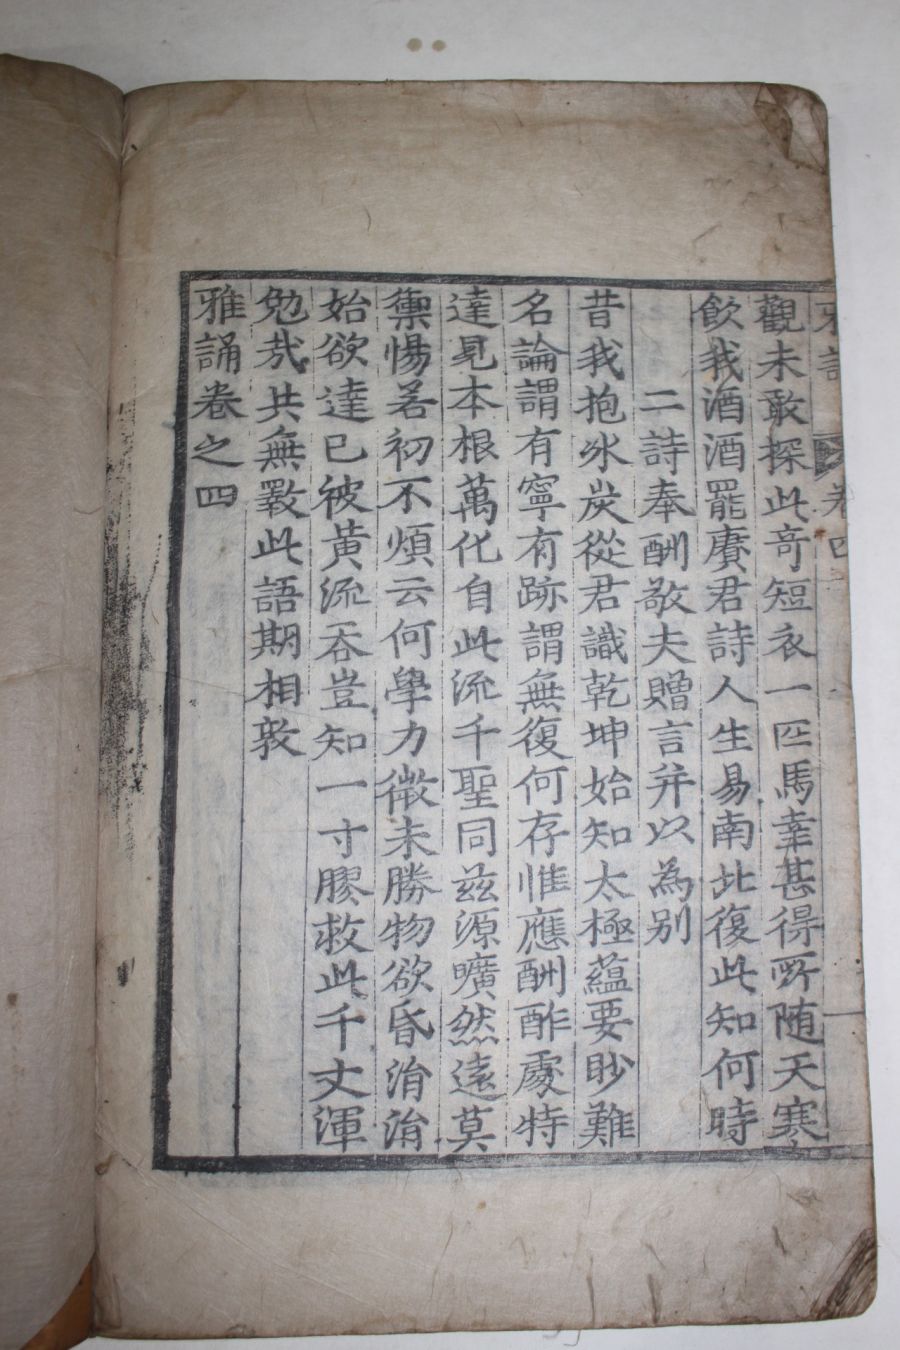 雅誦 卷四
觀未敢探此奇短衣一匹馬幸甚得所随天寒
飮我酒酒罷賡君詩人生易南北復此知何時
二詩奉酬敬夫贈言并以為別
昔我抱氷炭從君識乾坤始知太極蘊要眇難
名論謂有寧有跡謂無復何存惟應酬酢處特
達見本根萬化自此流千聖同茲源曠然遠莫
禦惕若初不煩云何學力微未勝物欲昏涓涓
始欲達已被黃流吞豈知一寸膠救此千丈渾
勉哉共無斁此語期相敦
雅誦卷之四